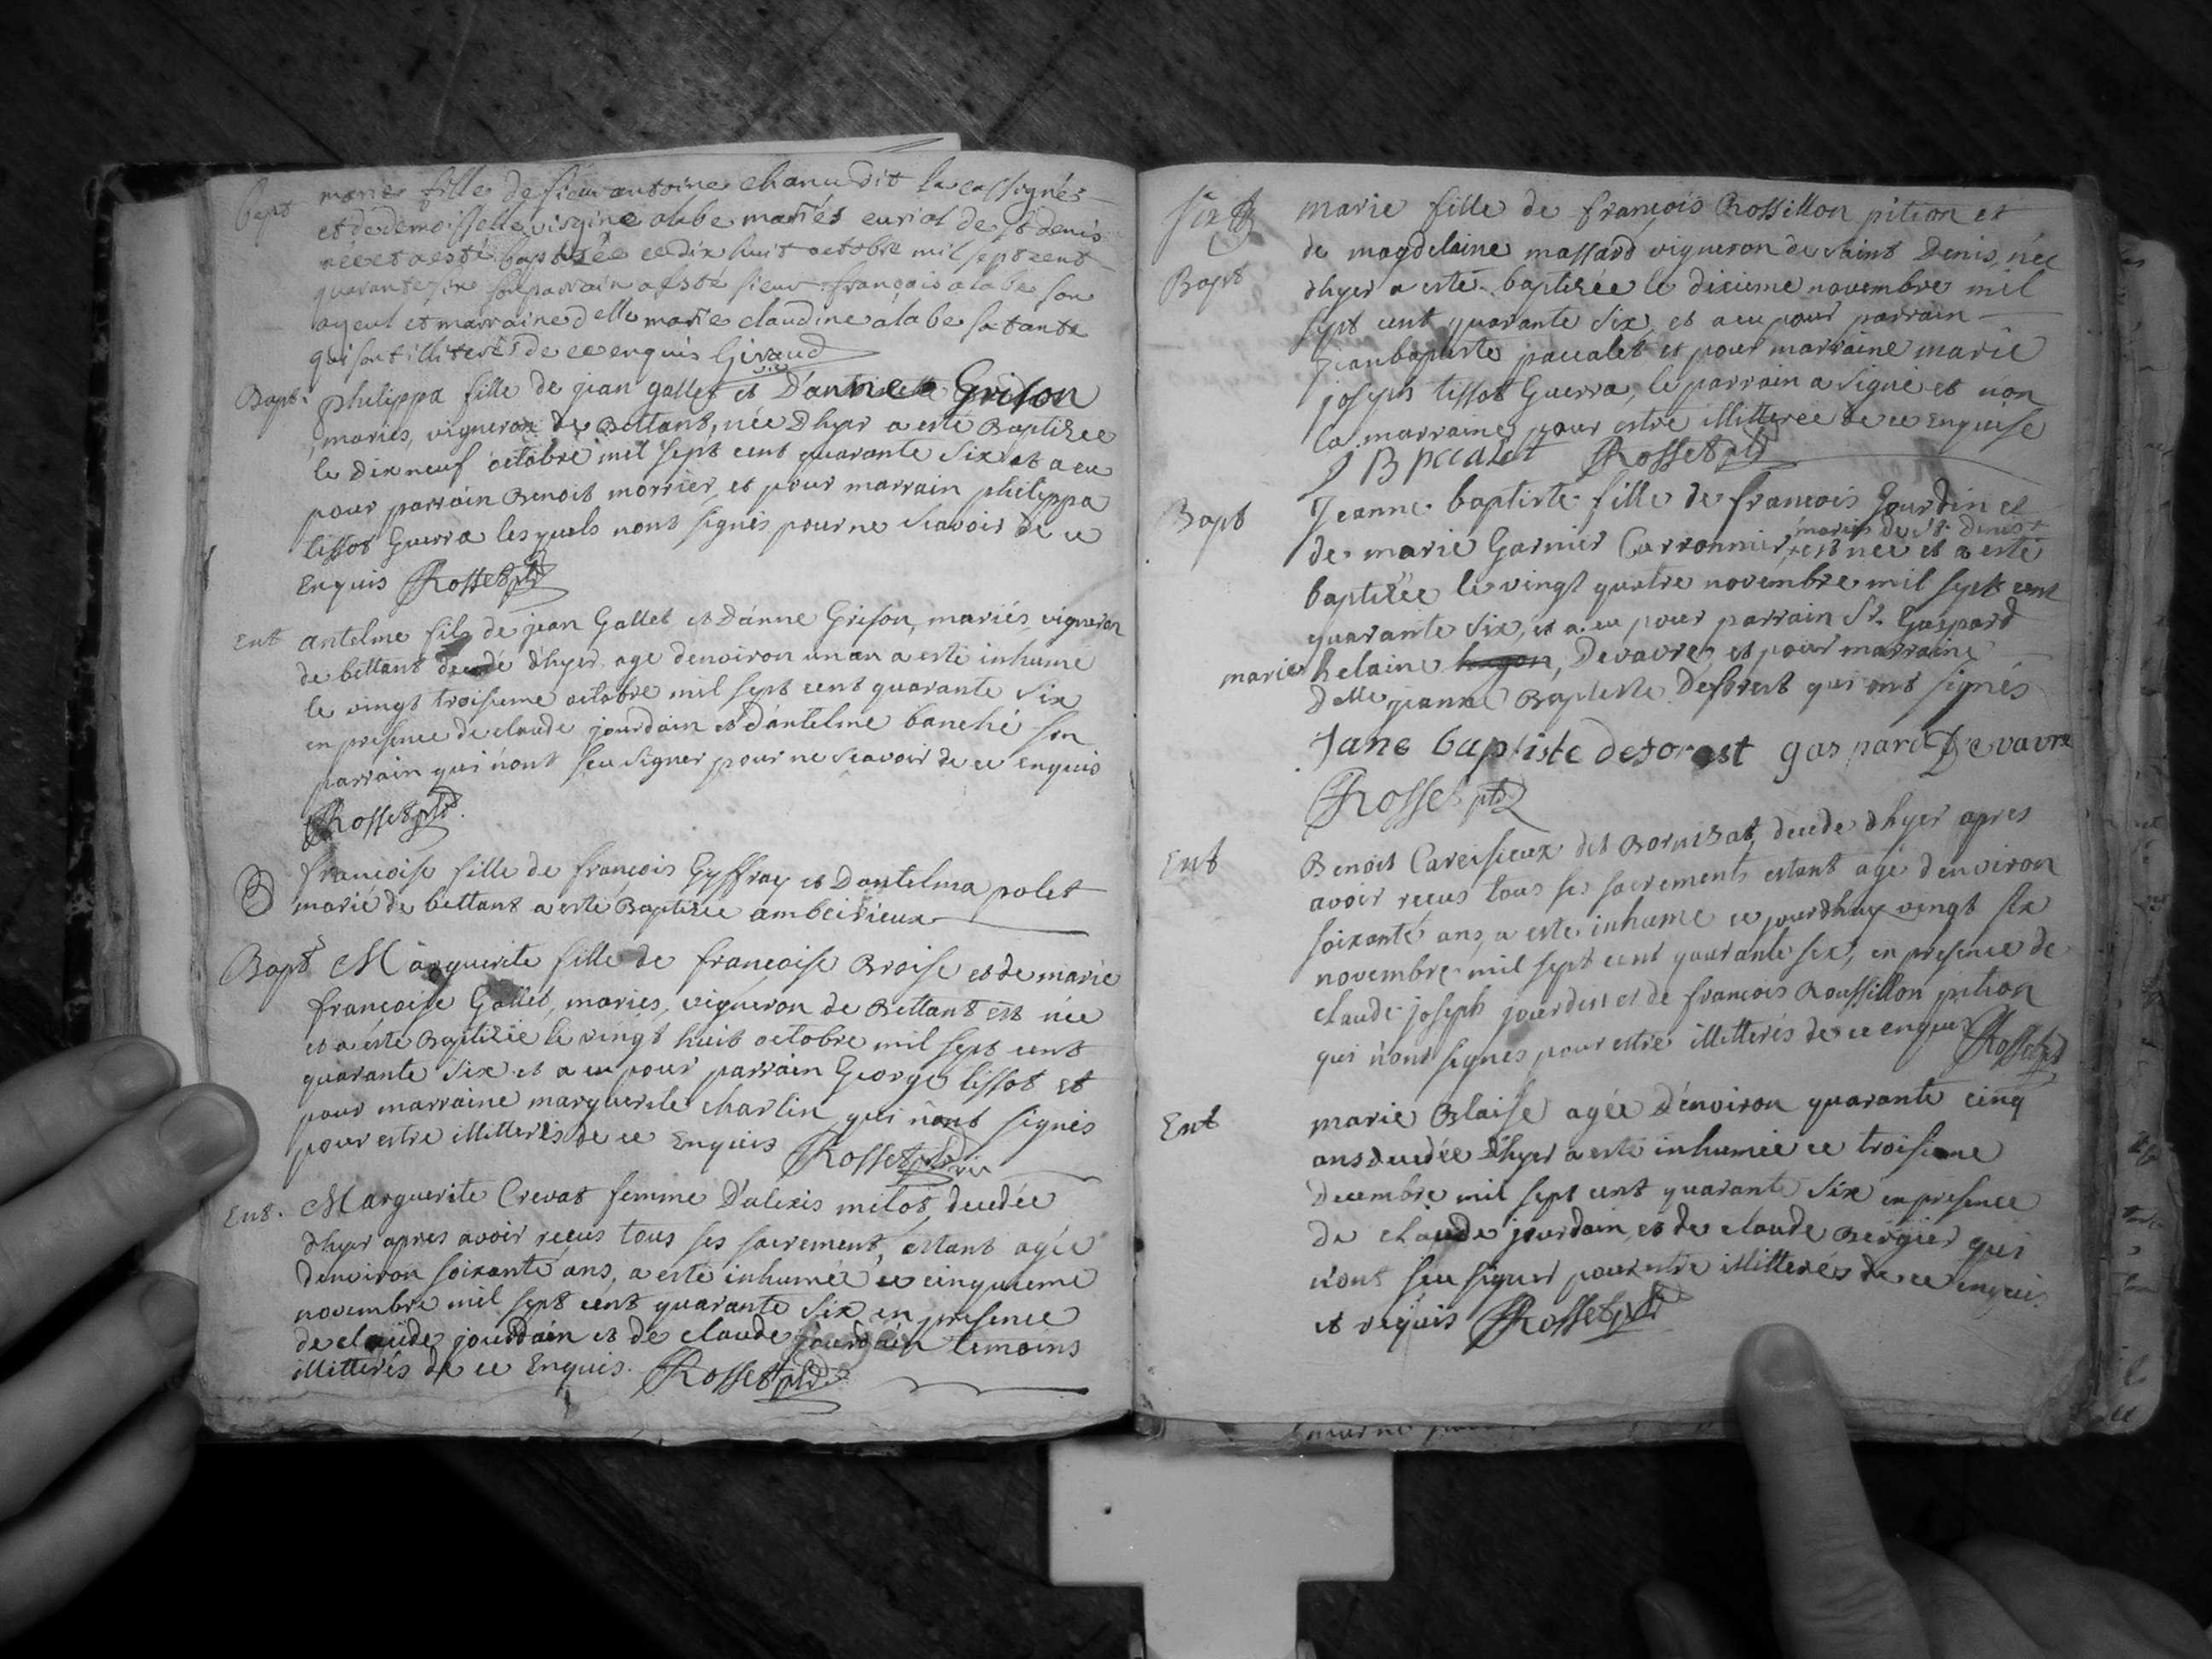 Bapt marie fille de sieur antoine chanu dit la cassignée
et de demoisselle virgine alabe mariés curial de st denis
née et a esté baptisée ce dix huit octobre mil sept cent
quarante six son parrain a esté sieur françois alabe son
ayeul et marraine delle marie claudine alabe sa tante
qui sont illiterés de ce enquis Giraud
Bapt. philippa fille de jean gallet et D'anne Grison
mariés, vigneron de Bettant, née Dhyer a esté Baptizee
le dix neuf octobre mil sept cent quarante Six et a eu
pour parrain Benoit morrier, et pour marrain philippa
tissot Guerra lesquels nont signés pour ne Scavoir de ce
Enquis Rosset
Ent antelme fils de jean Gallet et D'anne Grison, mariés, vigneron
de bettant decedé d'hyer age denviron un an a esté inhumé
le vingt troisieme octobre mil sept cent quarante Six
en presence de claude jourdain et d'antelme banché son
parrain qui n'ont sceu Signer pour ne Scavoir de ce enquis
Rosset
B françoise fille de françois Gyffray et Dantelma polet
marié de bettant a esté Baptizée ambeirieux
Bapt Marguerite fille de francoise Broise et de marie
françoise Gallet, mariés, vigneron de Bettant est née
et a esté Baptizée le vingt huit octobre mil sept cent
quarante Six et a eu pour parrain George tissot et
pour marraine marguerite charlin qui n'ont signés
pour estre illitterés de ce Enquis Rosset
Ent. Marguerite Crevat femme D'alexis milot, decedée
d'hyer apres avoir recus tous ses sacrement, estant agée
denviron soixante ans, a esté inhumée ce cinquieme
novembre mil sept cent quarante Six en presence
de claude jourdain et de claude temoins
illitterés de ce Enquis. Rosset
Six B marie fille de françois Rossillon pition et
de magdelaine massard vigneron de saint Denis, née
Bapt dhyer a esté baptizée le dixieme novembre mil
sept cent quarante Six, et a eu pour parrain
jean baptiste pacalet et pour marraine marie
joseph tissot Guerra, le parrain a Signé et non
la marraine pour estre illitteree de ce Enquise
J B pccalet Rosset
Bapt Jeanne baptiste fille de francois Jourdin et
mariés de st denis
de marie Garnier Carronnier, est née et a esté
baptizée le vingt quatre novembre mil sept cent
quarante six, et a eu pour parrain Sr. Gaspard
marie helaine Devavre, et pour marraine
Delle jeanne Baptiste Deforest qui ont signés
Jane baptiste deforest gaspard Devavre
Rosset
Ent Benoit Careisieux dit Bornisat, decede dhyer apres
avoir recus tous ses sacrements estant agé denviron
soixante ans, a esté inhumé ce jourdhuy vingt six
novembre mil sept cent quarante six, en presence de
claude joseph jourdin et de françois Roussillon pition
qui n'ont signés pour estre illitterés de ce enquis Rosset
Ent marie Blaise agée D'environ quarante cinq
ans decedée d'hyer a esté inhumée ce troisieme
Decembre mil sept cent quarante Six en presence
de claude jourdain, et de claude Bergier qui
n'ont sceu signer pour estre illitterés de ce enquis
et requis Rosset